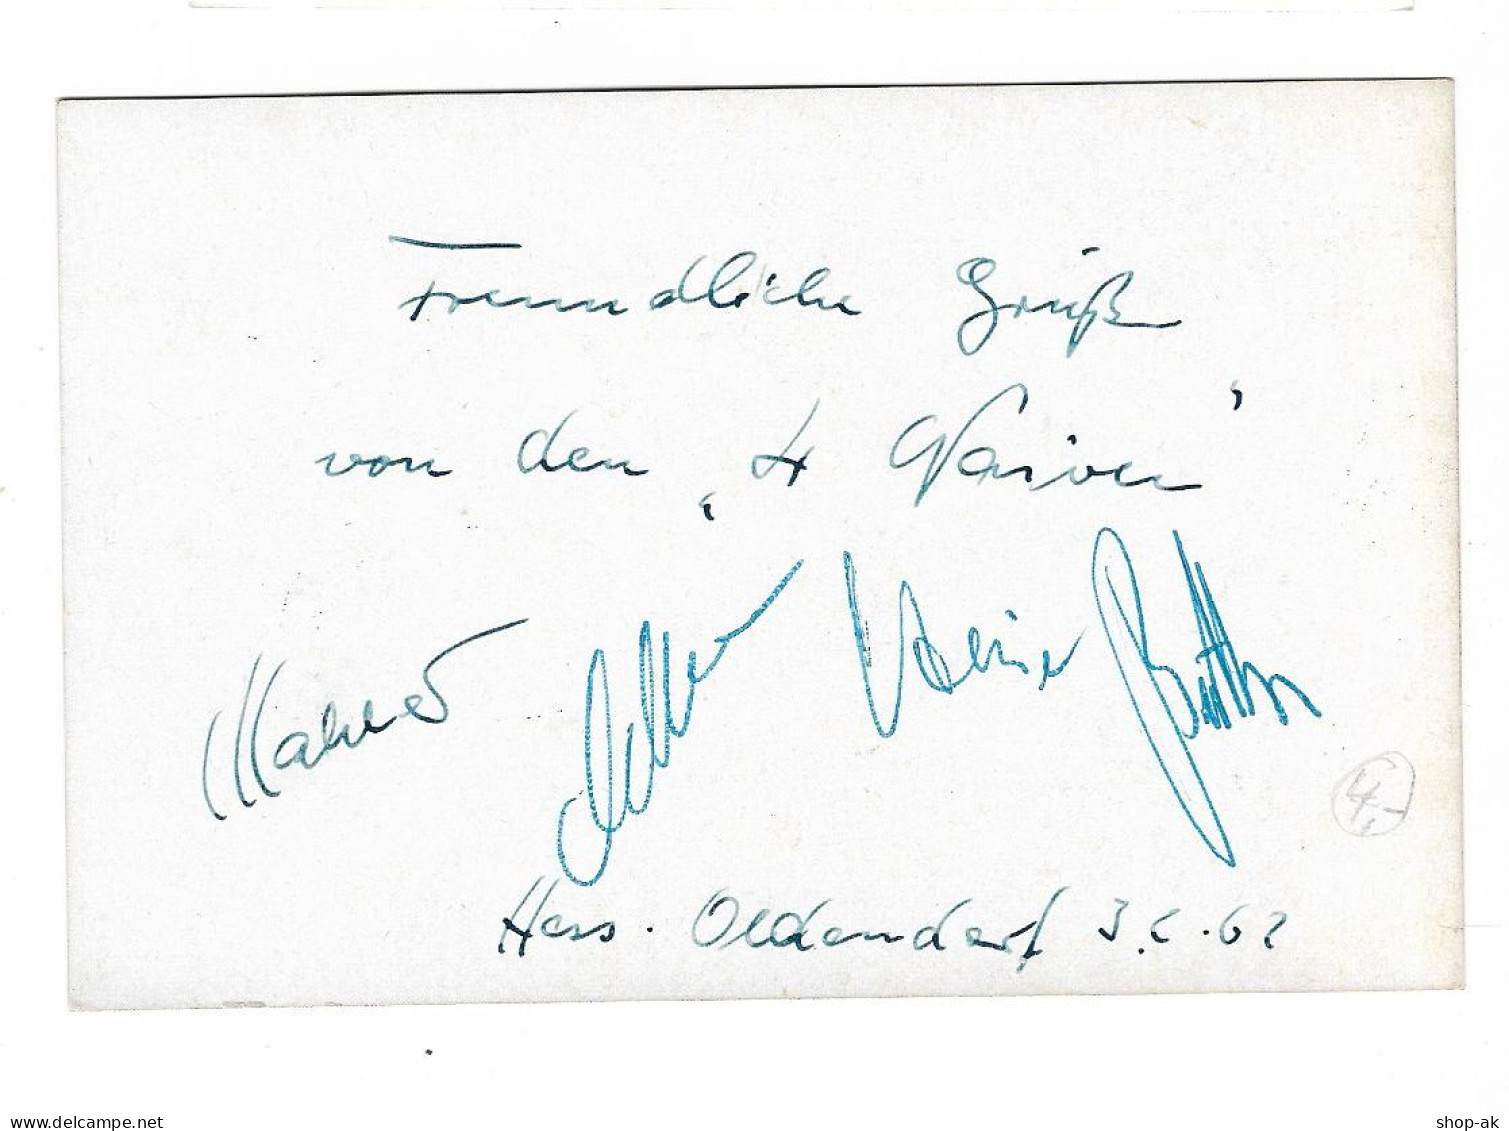 Freundliche Grüße
von den „4 Naiven"
Hess. Oldendorf 3.6.62
4,-
www.delcampe.net
shop-ak